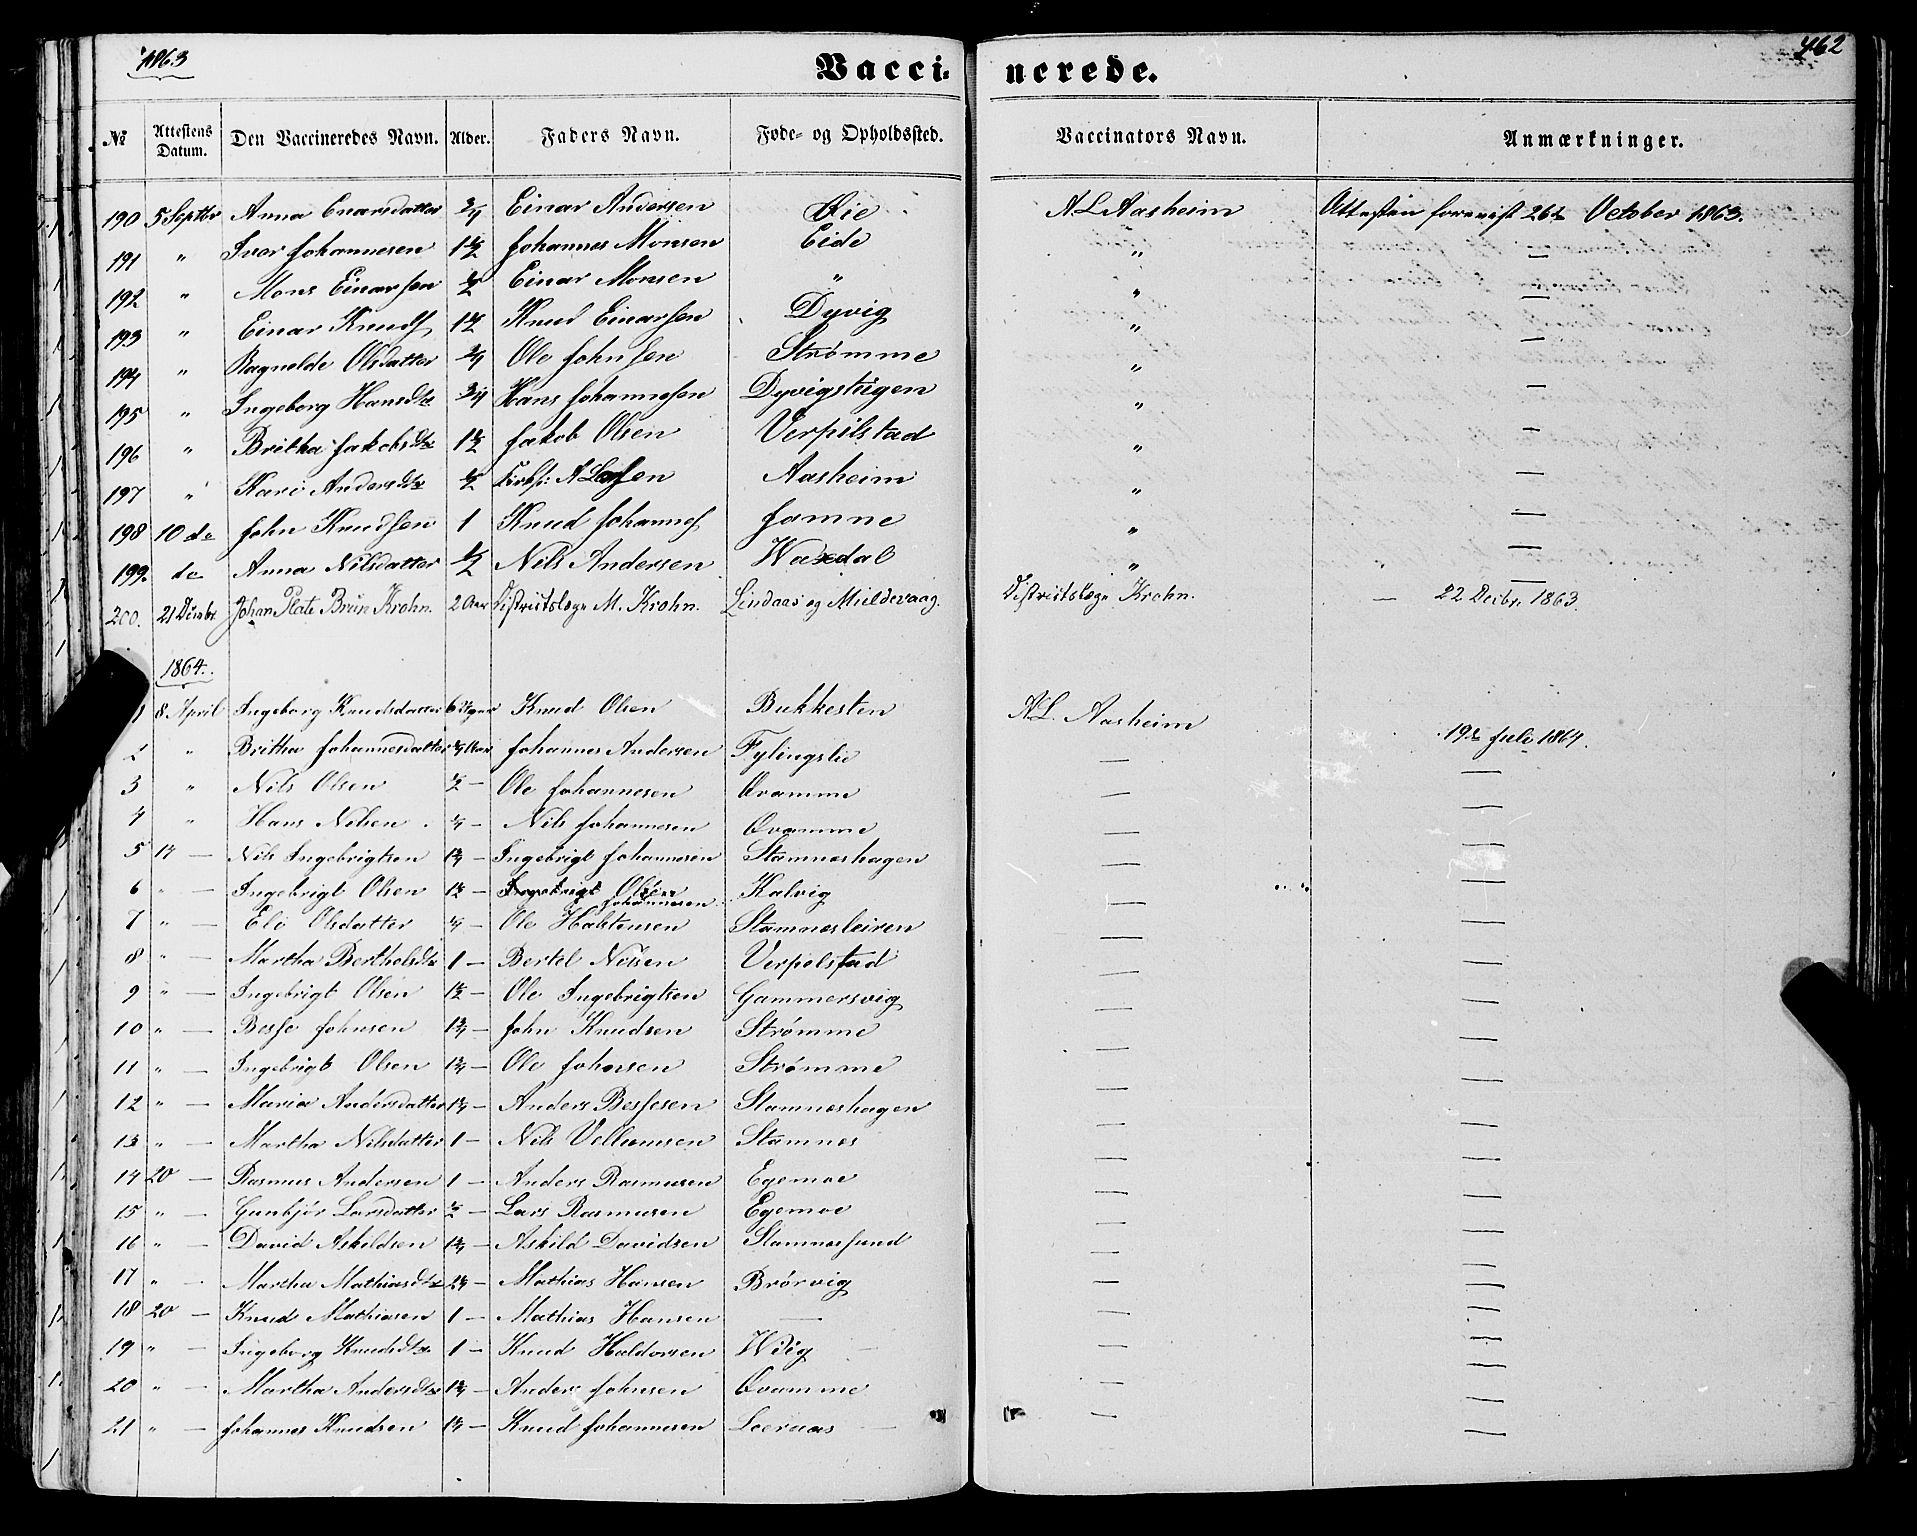 1863
462
Vacci- nerede.
No Attestens Datum. Den Vaccineredes Navn. Alder. Faders Navn. Føde- og Opholdssted. Vaccinators Navn. Anmærkninger.
190 5 Septbr Anna Enarsdatter 3/4 Einar Andersen Øie A L Aasheim Attesten forevist 26de October 1863.
191 " Ivar Johannesen 1 1/2 Johannes Monsen Eide " —
192 " Mons Einarsen 1/2 Einar Monsen " " —
193 " Einar Knuds Knud Einarsen Dyvig " —
194 " Ragnelde Olsdatter 3/4 Ole Johnsen Strømme " —
195 " Ingeborg Hansdtr 3/4 Hans Johannesen Dyvigstugen " —
196 " Britha Jakobsdtr 1 1/2 Jakob Olsen Verpilstad " —
197 " Kari Andersdtr 1/2 A Larsen Aasheim " —
198 10 de John Knudsen 1 Knud Johannes Jamne " —
199. de Anna Nilsdatter 1/2 Nils Andersen Waxdal " —
200. 21 Decebr Johan Plate Bruun Krohn. 2 Aar Districtslæge M. Krohn. Lindaas og Mieldevaag. Districtslæge Krohn. — 22 Decbr. 1863.
1864.
1 8 April Ingeborg Knudsdatter 6 Uger Knud Olsen Bukkesten A. L. Aasheim 19de Juli 1864.
2 " Britha Johannesdatter 3/4 Aar Johannes Andersen Fylingslie — —
3 " Nils Olsen 1/2 — Ole Johannesen Qvamme — —
4 " Hans Nilsen 3/4 — Nils Johannesen Qvamme — —
5 14 — Nils Ingebrigtsen 1 3/4 — Ingebrigt Johannesen Stamneshagen — —
6 " — Ingebrigt Olsen 1 1/2 — Ingebrigt Olsen Johannesen Kalvig — —
7 " — Eli Olsdatter 3/4 — Ole Halstensen Stamnesleiren — —
8 " — Martha Bertholsdtr 1 — Bertel Nilsen Verpelstad — —
9 " — Ingebrigt Olsen 1 1/2 — Ole Ingebrigtsen Gammersvig — —
10 " — Besse Johnsen 1 3/4 — John Knudsen Strømme — —
11 " — Ingebrigt Olsen 1 3/4 — Ole Johnsen Strømme — —
12 " — Maria Andersdatter 1 3/4 — Anders Bessesen Stamneshagen — —
13 " — Martha Nilsdatter 1 — Nils Vellumsen Stamnes — —
14 20 — Rasmus Andersen 1 — Anders Rasmusen Egemoe — —
15 " — Gunbjør Larsdatter 1/2 — Lars Rasmusen Egemoe — —
16 " — David Askildsen 1 3/4 — Askild Davidsen Stamnessund — —
17 " — Martha Mathiasdtr 2 3/4 — Mathias Hansen Brørvig — —
18 20 — Knud Mathiasen 1 — Mathias Hansen — — —
19 " — Ingeborg Knudsdtr 1 — Knud Haldorsen Wiig — — —
20 " — Martha Andersdtr 1 3/4 — Anders Johnsen Qvamme — —
21 " — Johannes Knudsen 1 3/4 — Knud Johannesen Leeraas — — —